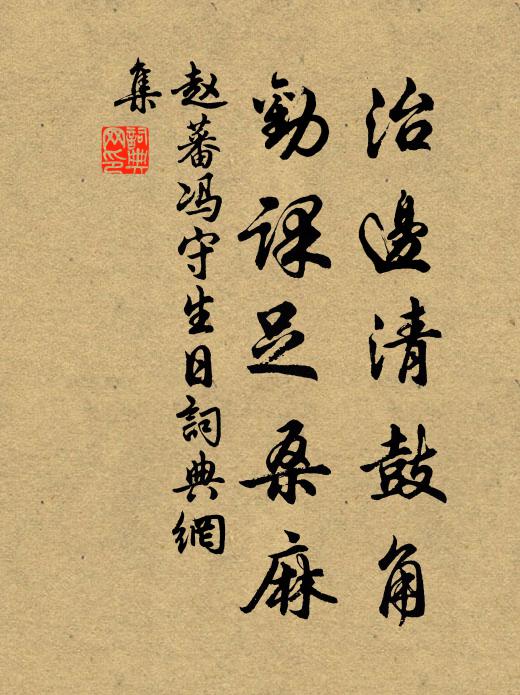 治邊清鼓角
勸課足桑麻
赵蕃冯守生日詞典網
集
詞典
网印